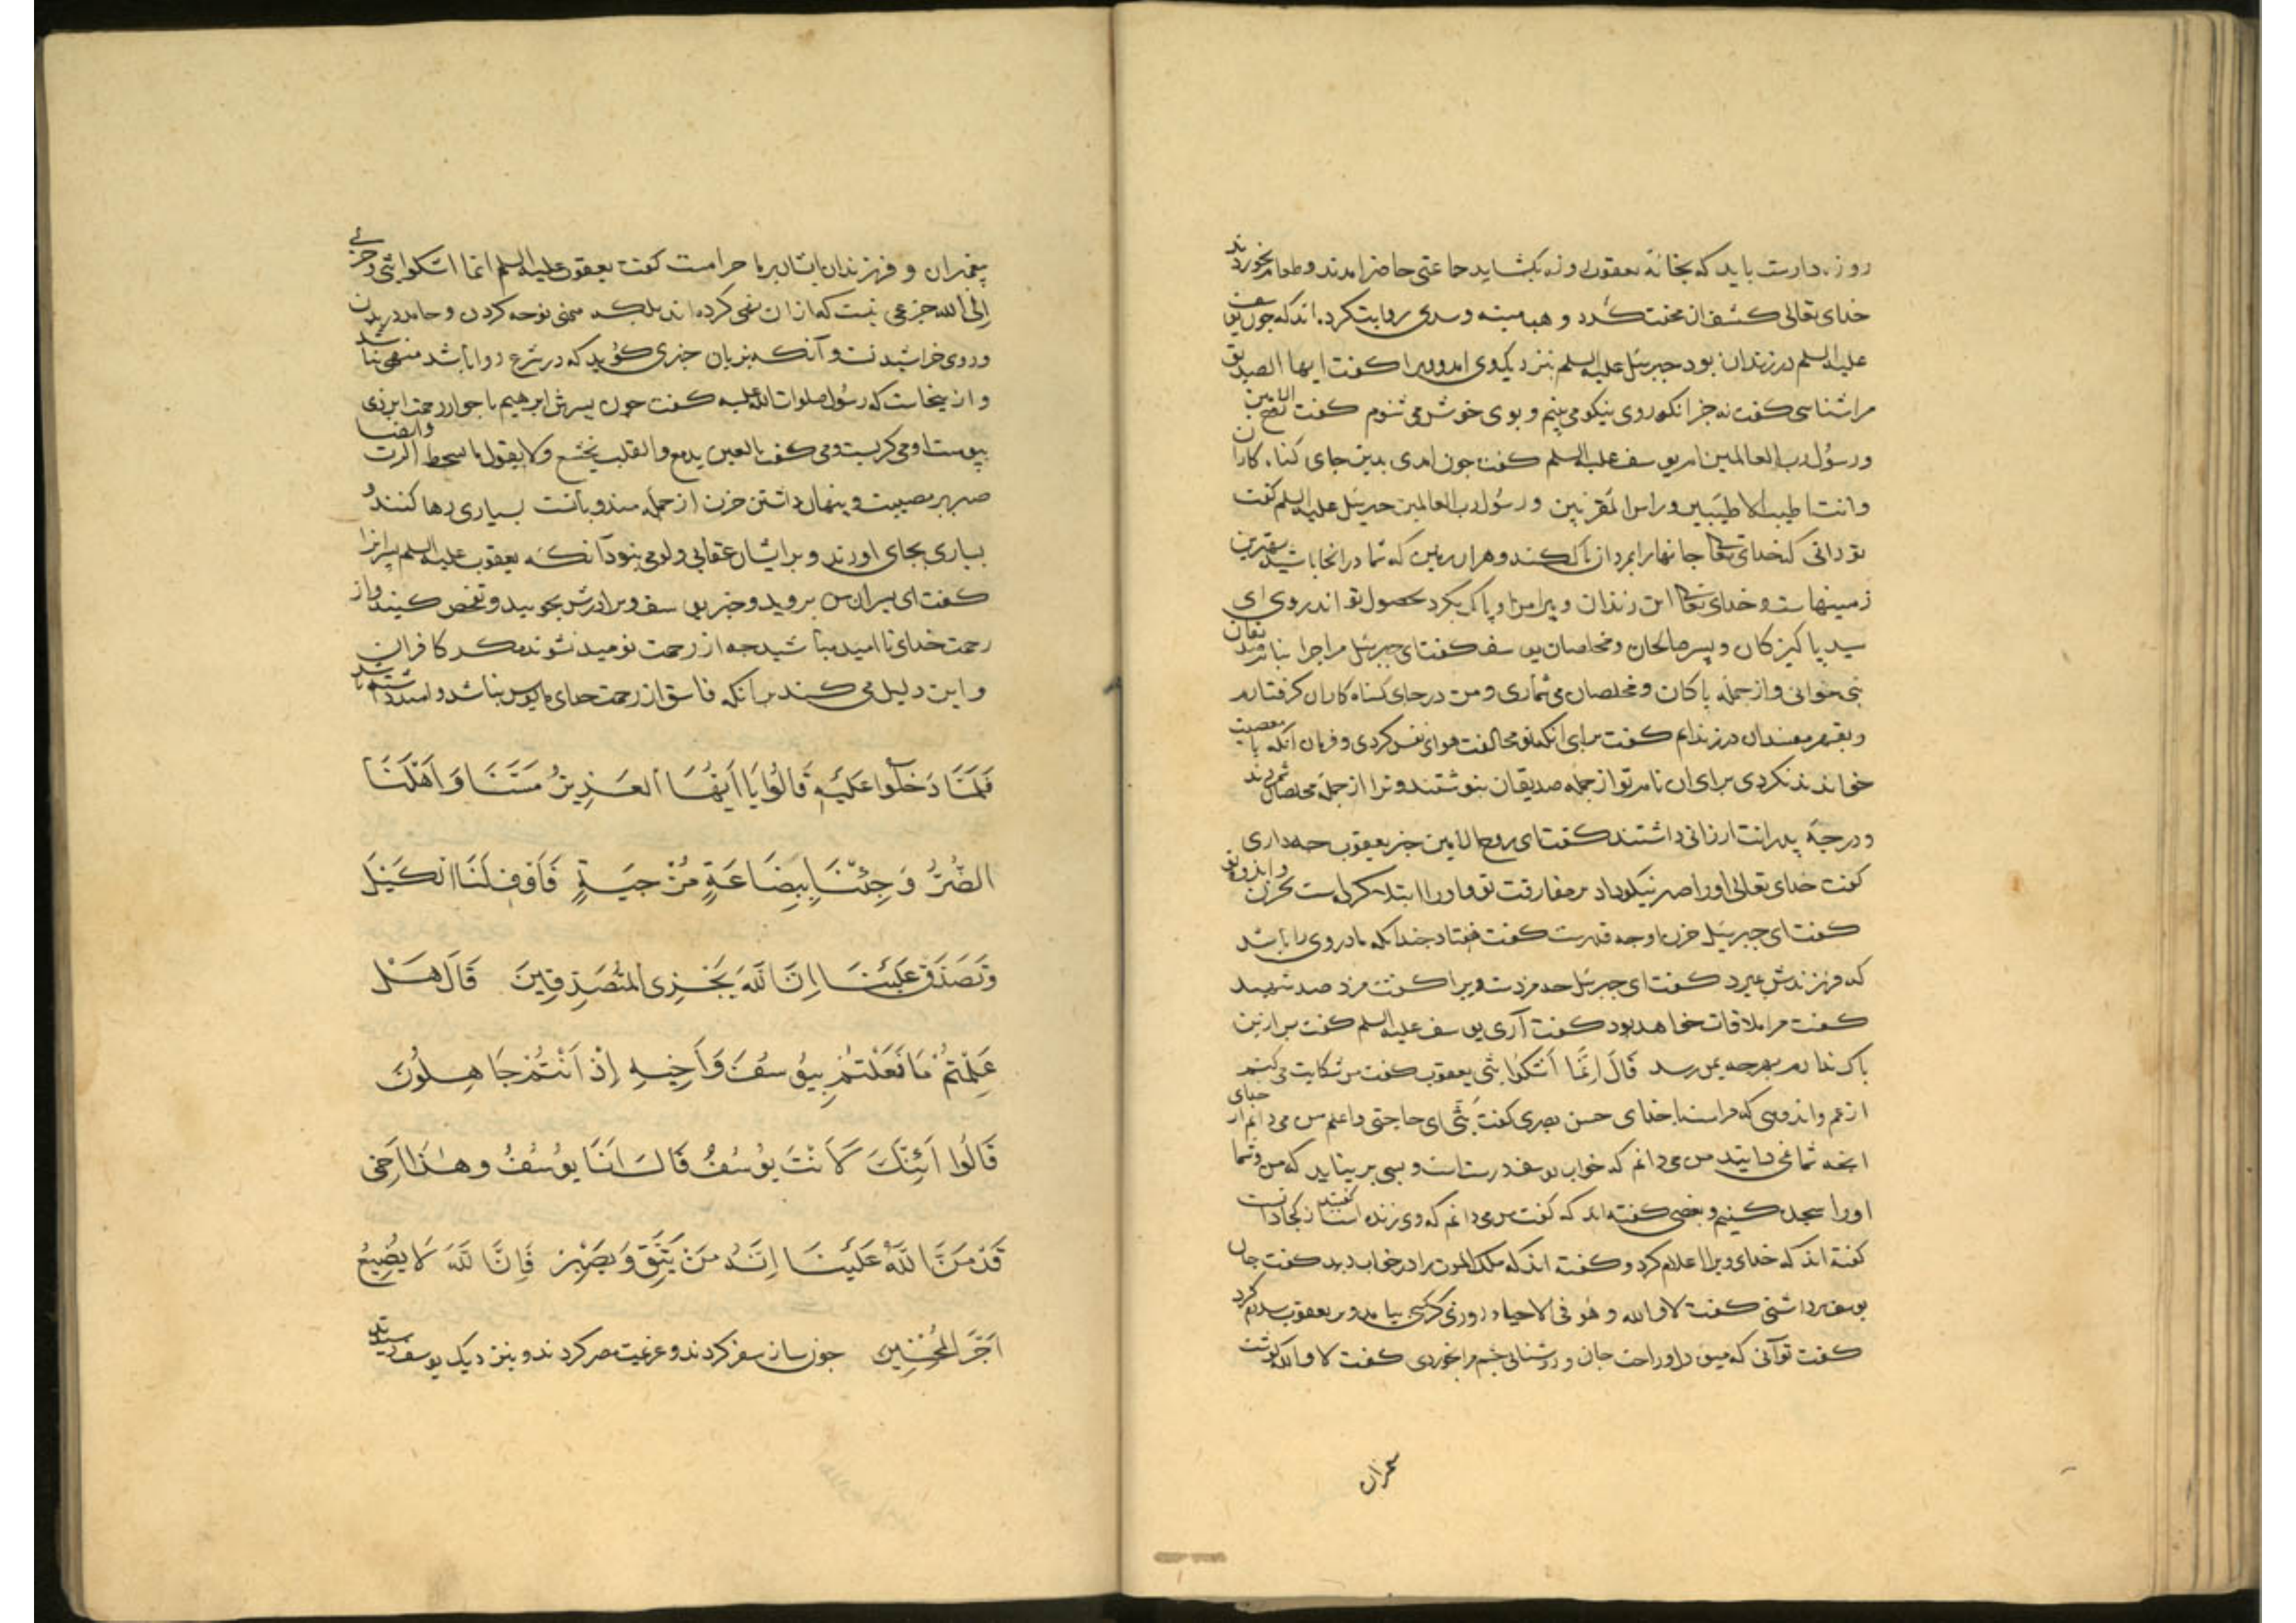 روزه دارست باید که بخانهٔ یعقوب روزه بکشاید جماعتی حاضر امدند و طعام بخوردند
خدای تعالی کشف ان محنت کرد و هب منبه و سدی روایت کرده اند که جون یوسف
علیه السلم در زندان بود جبرئیل علیه السلم بنزدیک وی امد ویرا کفت ایها الصدیق
مرا شناسی کفت نه جز انکه روی نیکو می بینم و بوی خوش می شنوم کفت الروح الامین
و رسول رب العالمین ام یوسف علیه السلم کفت جون امدی بدین جای کناه کاران
وانت اطیب الاطیبین وراس المقربین ورسول رب العالمین جبرئیل علیه السلم کفت
تو دانی که خدای تعالی جایها را بمردان پاک کند و هران زمین که شما در انجا باشید بهترین
زمینهاست و خدای تعالی این زندان و پیرامن او پاک بکرد بحصول تو اندروی ای
سید پاکیزکان و پسر صالحان و مخلصان یوسف کفت ای جبرئیل مرا جرا بنام صدیقان
می خوانی و از جمله پاکان و مخلصان می شماری و من در جای کناه کاران کرفتارم
و بقهر مفسدان در زندانم کفت برای انکه تو مخالفت هوای نفس کردی و فرمان انکه با معصیت
خواندند نکردی برای ان نام تو از جمله صدیقان بنوشتند و ترا از جمله مخلصان شمردند
و درجهٔ پدرانت ارزانی داشتند کفت ای روح الامین خبر یعقوب جه داری
کفت خدای تعالی اورا صبر نیکو داد بر مفارقت تو و اورا ابتلا کرده است بحزن و اندوه تو
کفت ای جبرئیل حزن او جه قدرست کفت هفتاد جندانکه مادروی را باشد
که فرزندش بمیرد کفت ای جبرئیل جه مزدست ویرا کفت مزد صد شهید
کفت مرا ملاقات خواهد بود کفت آری یوسف علیه السلم کفت پس ازین
باک ندارم بهرجه بمن رسد قَالَ اِنَّمَا اَشْکُوا بَثّی یعقوب کفت من شکایت می کنم
از غم و اندوهی که مراست با خدای حسن بصری کفت بَثّی ای حاجتی و اعلم من می دانم از خدای
انجه شما نمی دانید من می دانم که خواب یوسف درست است و بسی برنیاید که من و شما
اورا سجده کنیم و بعضی کفته اند که کفت من می دانم که وی زنده است کفتند از کجا دانست
کفته اند که خدای ویرا اعلام کرد و کفته اند که ملک الموت را در خواب دید کفت جان
یوسف برداشتی کفت لا والله و هو فی الاحیاء روزی کرکی بیامد و بر یعقوب سلام کرد
کفت تو آنی که میوه دل و راحت جان و روشنایی جشم مرا بخوردی کفت لا والله کوشت
بیغمبران و فرزندان ایشان بر ما حرامست کفت یعقوب علیه السلم انما اشکوا بثی وحزنی
اِلی الله جزعی نیست که ازان نهی کرده اند بلکه منهی نوحه کردن و جامه دریدن
و روی خراشیدنست و آنکه بزبان جیزی کوید که در شرع روا باشد منهی نباشد
و ازینجاست که رسول صلوات الله علیه کفت جون پسرش ابرهیم با جوار رحمت ایزدی
پیوست او می کریست و می کفت العین یدمع والقلب یخشع ولا یقول ما یسخط الرب وایضا
صبر بر مصیبت و پنهان داشتن حزن از جمله مندوباتست بسیاری رها کنند و
بسیاری بجای اورند و بر ایشان عقابی و لومی نبود آنکه یعقوب علیه السلم پسرانرا
کفت ای پسران من بروید و خبر یوسف و برادرش بجویید و تفحص کنید و از
رحمت خدای نا امید مباشید جه از رحمت نومید نشوند مکر کافران
و این دلیل می کند بر انکه فاسق از رحمت خدای مایوس نباشد و امید داشته باشد
فَلَمَّا دَخَلُوا عَلَیْهِ قَالُوا یَا اَیُّهَا الْعَزِیزُ مَسَّنَا وَ اَهْلَنَا
الضُّرُّ وَ جِئْنَا بِبِضَاعَةٍ مُزْجَیَةٍ فَاَوْفِ لَنَا الْکَیْلَ
وَتَصَدَّقْ عَلَیْنَا اِنَّ اللّٰهَ یَجْزِی الْمُتَصَدِّقِینَ قَالَ هَلْ
عَلِمْتُمْ مَا فَعَلْتُمْ بِیُوسُفَ وَ اَخِیهِ اِذْ اَنْتُمْ جَاهِلُونَ
قَالُوا اَئِنَّکَ لَاَنْتَ یُوسُفُ قَالَ اَنَا یُوسُفُ وهٰذَا اَخِی
قَدْ مَنَّ اللّٰهُ عَلَیْنَا اِنَّهُ مَنْ یَتَّقِ وَ یَصْبِرْ فَاِنَّ اللّٰهَ لَا یُضِیعُ
اَجْرَ الْمُحْسِنِینَ جون ساز سفر کردند و عزیمت مصر کردند و بنزدیک یوسف رسیدند